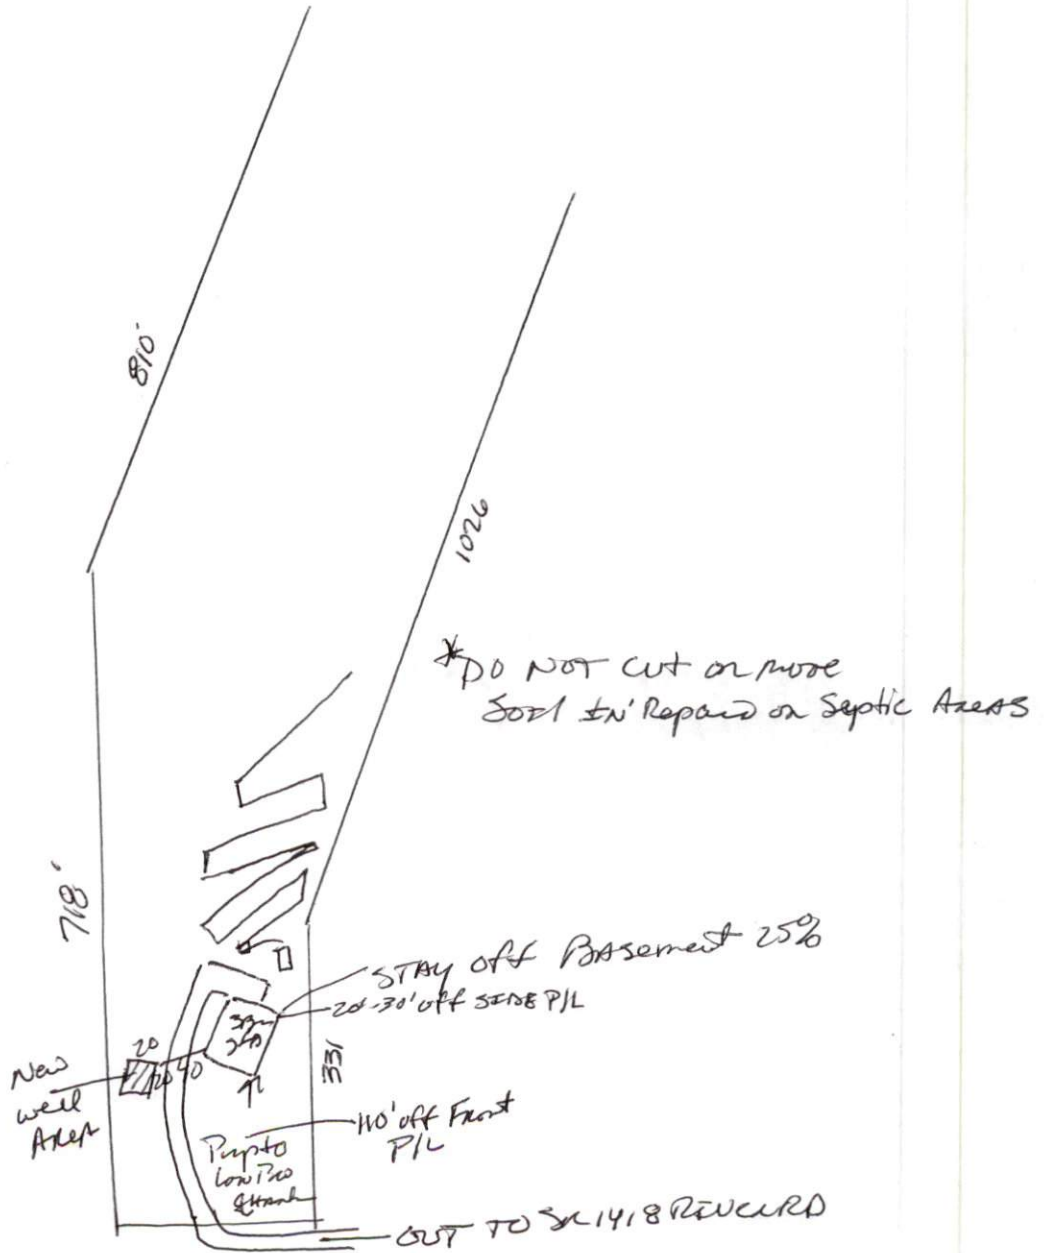 810'
1026
*DO NOT CUT or move
SOIL IN Repair or Septic AREAS
718'
STAY off BASEMENT 25%
20'-30' off SIDE P/L
331
20
20
40
New
well
AREA
110' off Front
P/L
Pump to
Low Pro
OUT TO SR 1418